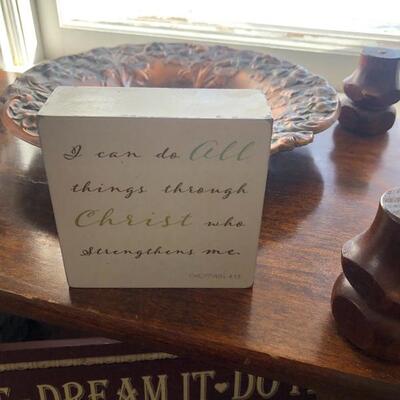 I can do All
things through
Christ who
Strengthens me.
PHILIPPIANS 4:13
DREAM IT♥DO